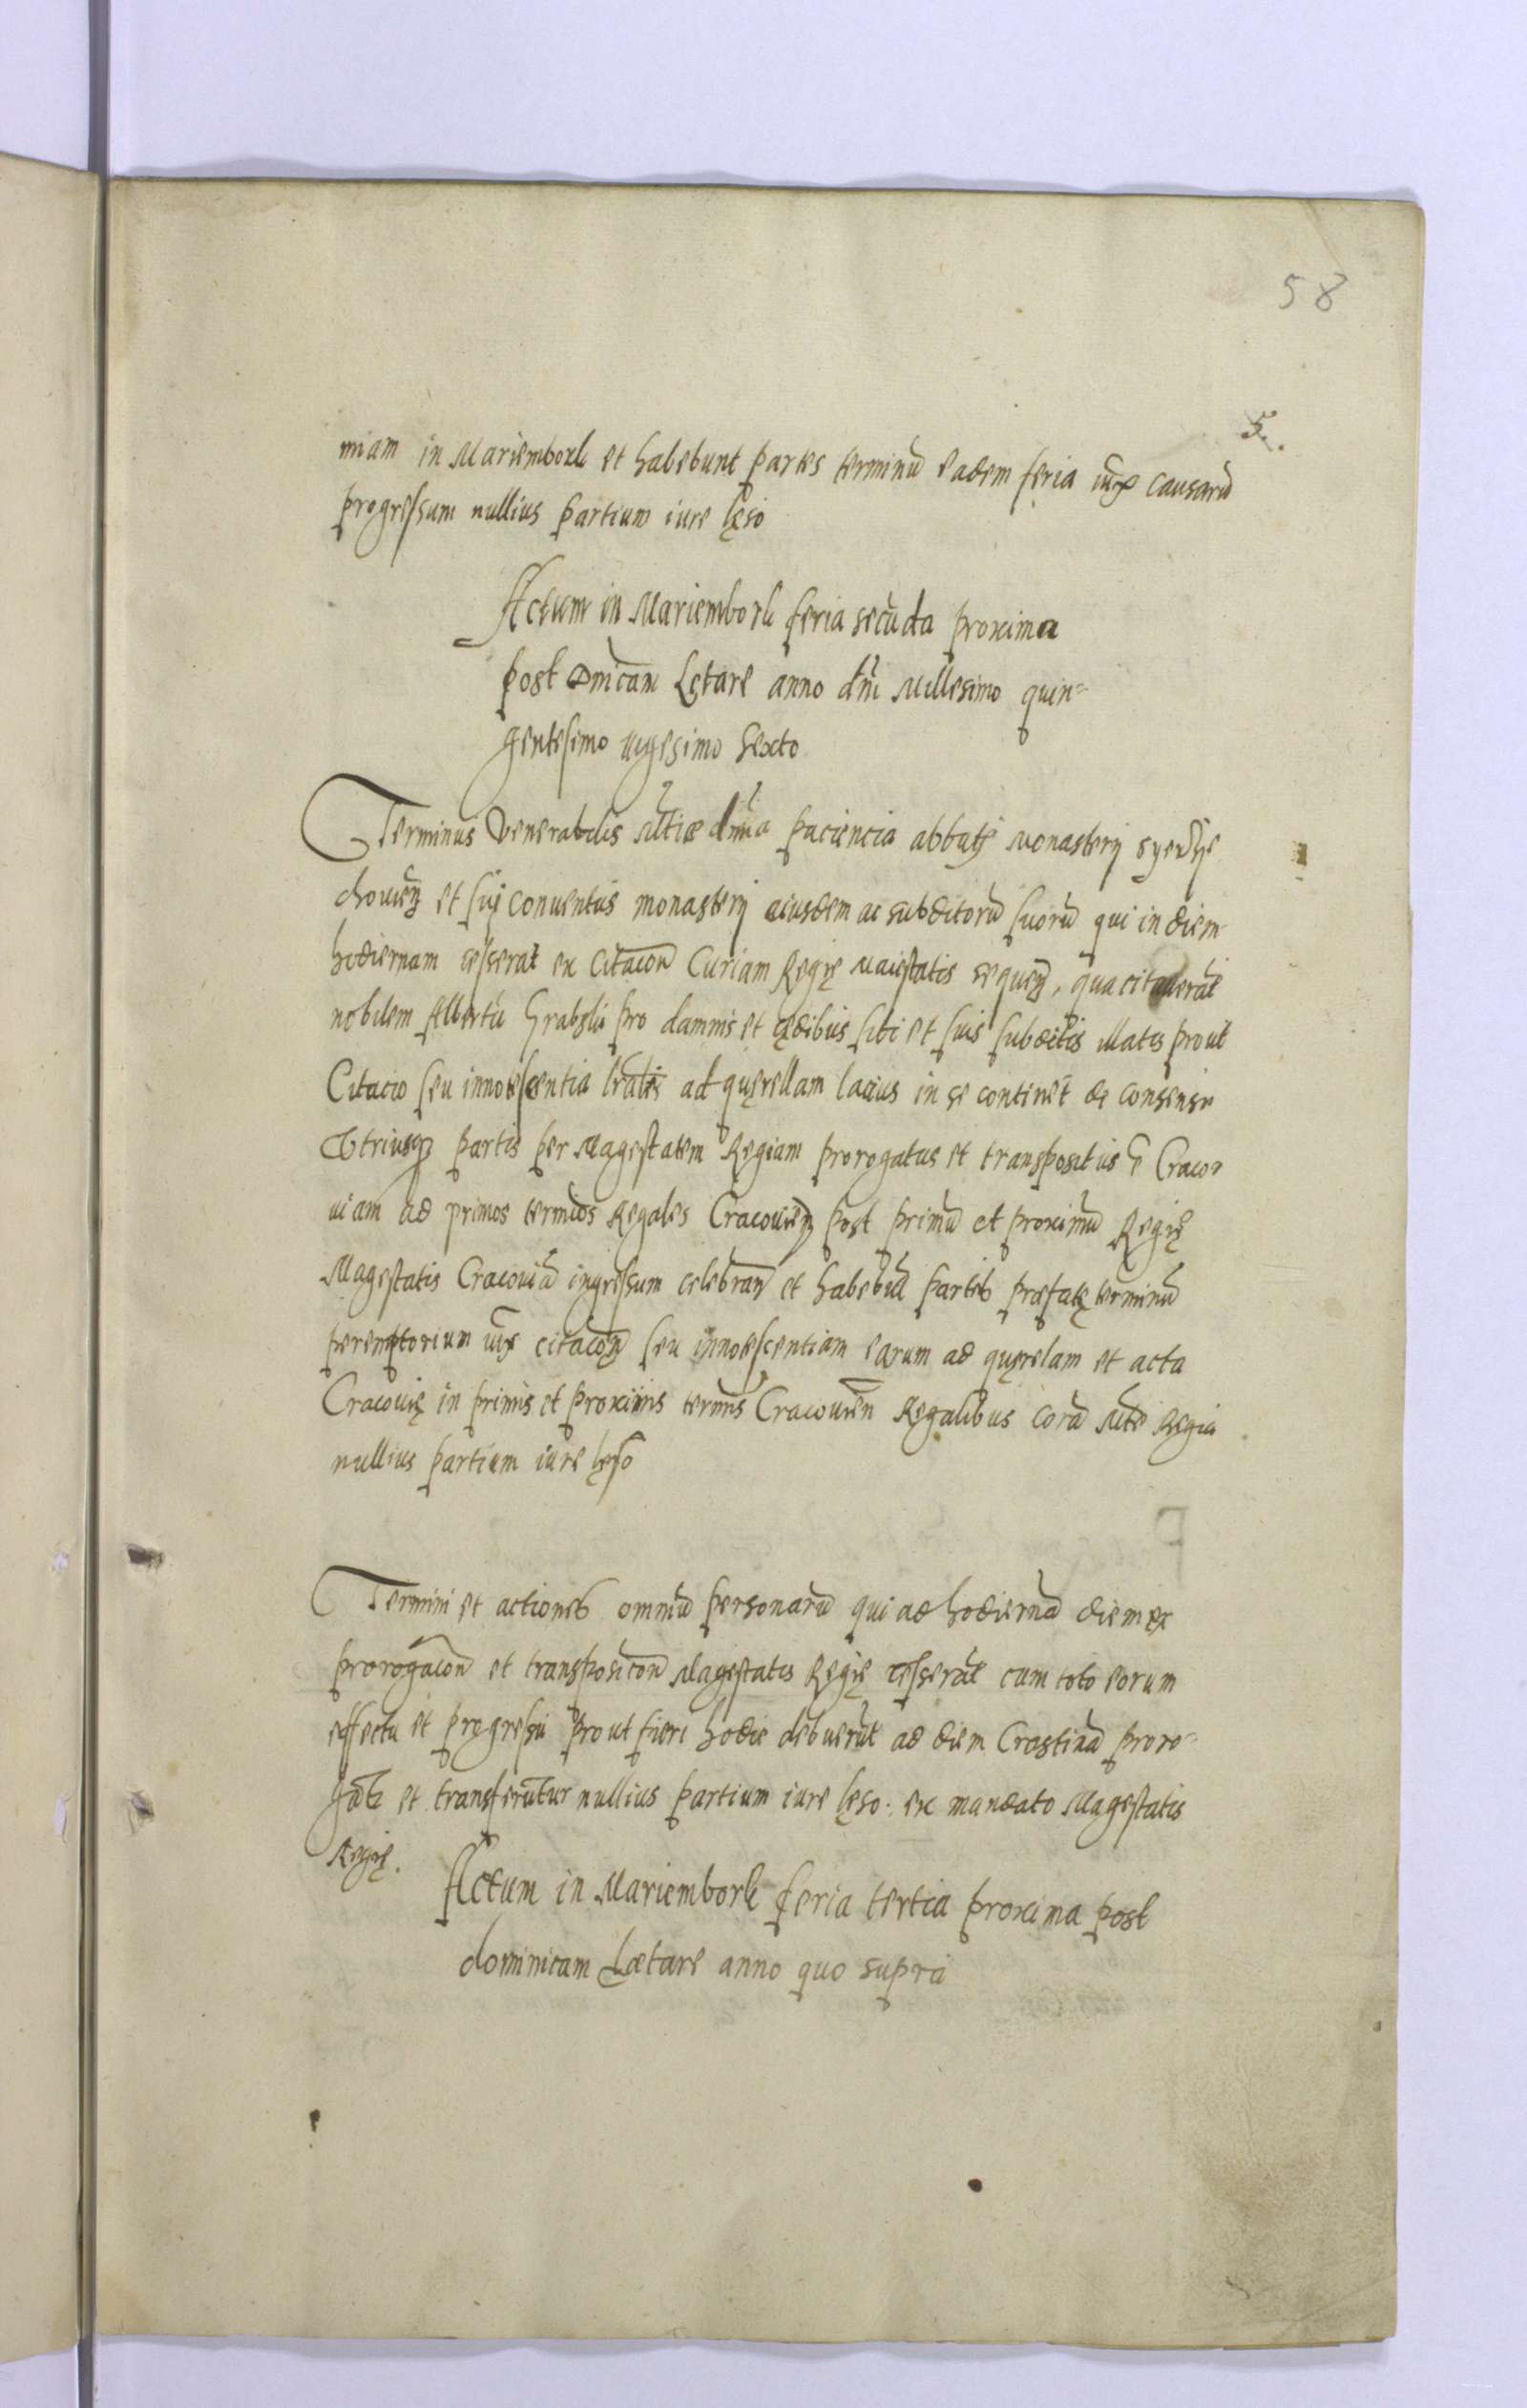 58
5.
miam in Mariembork et habebunt partes terminū eadem feria iuxͣ causarū
progressum nullius partium iure lęso
Actum in Mariembork feria secūda proxima
post dnīcam Lętare anno dnī Millesimo quin=
gentesimo vigesimo sexto
Terminus venerabilis dnīi paciencia abbatis Monasterij
et sui conuentus monasterij eiusdem ac subditorū suorū qui in diem
hodiernam cesserat ex citacōn Curiam Regię Maiestatis sequen̄, qua citauerāt
nobilem Albertū Grabski pro damnis et sibi et suis subditis illatis prout
Citacio seu innotescentia ad quęrellam lacius in se continēt de consensu
vtriusq3 partis per Magestatem Regiam prorogatus et transpositus ē Craco=
uiam ad primos termīos Regales Cracouien̄ post primū et proximū Regię
Magestatis Cracouiā ingressum celebran̄ et habebūt partes præfatę terminū
peremptorium iuxͣ citacōn̄ seu innotescentiam earum ad quęrelam et acta
Cracouię in primis et proximis termīs Cracouien̄ Regalibus corā Mte Regia
nullius partium iure lęso
Termini et actiones omniū personarū qui ad hodiernā diem ex
prorogacōn̄ et transposicōn̄ Magestatis Regię cesserāt cum toto eorum
effectu et progressu prout fieri hodie debuerūt ad diem Crastinā proro=
gātr et transferūtur nullius partium iure lęso. ex mandato Magestatis
Regię.
Actum in Mariembork feria tertia proxima post
dominicam Lætare anno quo supra